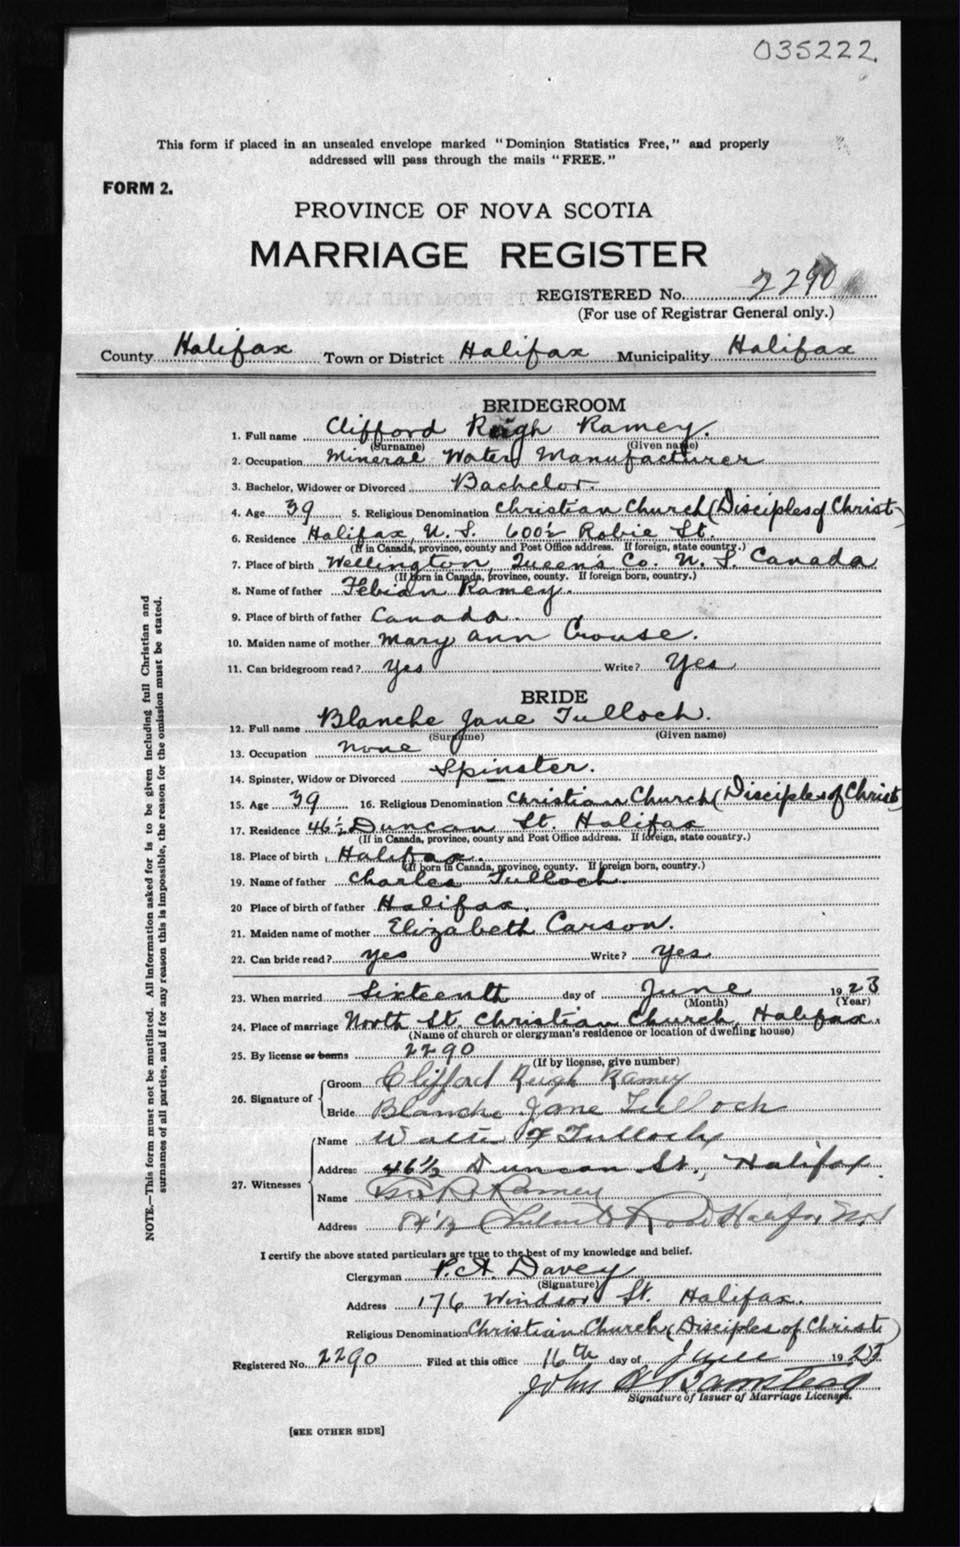 035222.
This form if placed in an unsealed envelope marked "Dominion Statistics Free," and properly
addressed will pass through the mails "FREE."
FORM 2.
PROVINCE OF NOVA SCOTIA
MARRIAGE REGISTER
REGISTERED No. 2290
(For use of Registrar General only.)
County Halifax Town or District Halifax Municipality Halifax
BRIDEGROOM
1. Full name Clifford Rugh Ramey.
(Surname) (Given name)
2. Occupation Mineral Water Manufacturer
3. Bachelor, Widower or Divorced Bachelor.
4. Age 39 5. Religious Denomination Christian Church (Disciples of Christ)
6. Residence Halifax, N. S. 600½ Robie St.
(If in Canada, province, county and Post Office address. If foreign, state country.)
7. Place of birth Wellington, Queen's Co. N. S. Canada
(If born in Canada, province, county. If foreign born, country.)
8. Name of father Febian Ramey.
9. Place of birth of father Canada.
10. Maiden name of mother Mary Ann Crouse.
11. Can bridegroom read? Yes Write? Yes
BRIDE
12. Full name Blanche Jane Tulloch.
(Surname) (Given name)
13. Occupation none
14. Spinster, Widow or Divorced Spinster.
15. Age 39 16. Religious Denomination Christian Church (Disciples of Christ)
17. Residence 46½ Duncan St. Halifax
(If in Canada, province, county and Post Office address. If foreign, state country.)
18. Place of birth Halifax.
(If born in Canada, province, county. If foreign born, country.)
19. Name of father Charles Tulloch.
20 Place of birth of father Halifax.
21. Maiden name of mother Elizabeth Carson.
22. Can bride read? Yes Write? Yes
23. When married Sixteenth day of June 1923
(Month) (Year)
24. Place of marriage North St. Christian Church, Halifax.
(Name of church or clergyman's residence or location of dwelling house)
25. By license or banns 2290
(If by license, give number)
26. Signature of Groom Clifford Rugh Ramey
Bride Blanche Jane Tulloch
27. Witnesses Name Walter F Tulloch
Address 46½ Duncan St., Halifax.
Name R. Ramey
Address Road Halifax N.S
I certify the above stated particulars are true to the best of my knowledge and belief.
Clergyman P.A. Davey
(Signature)
Address 176 Windsor St. Halifax.
Religious Denomination Christian Church (Disciples of Christ)
Registered No. 2290 Filed at this office 16th day of June 1923
John
Signature of Issuer of Marriage Licenses.
[SEE OTHER SIDE]
NOTE.—This form must not be mutilated. All information asked for is to be given including full Christian and
surnames of all parties, and if for any reason this is impossible, the reason for the omission must be stated.